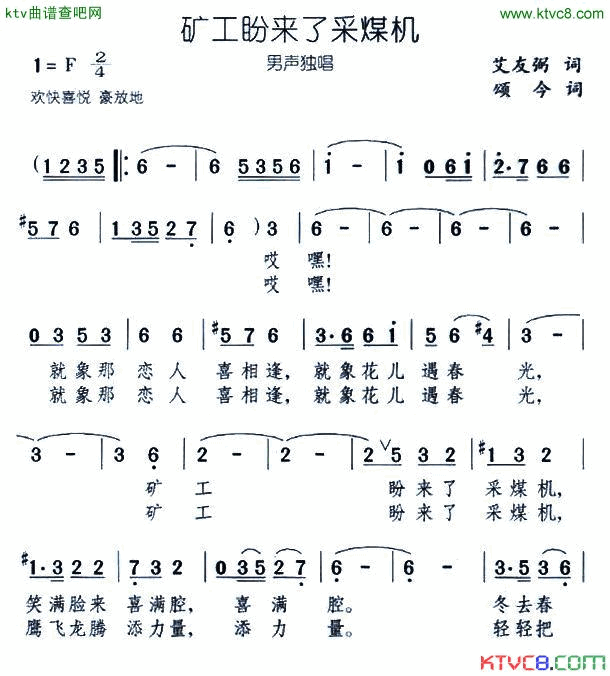 ktv曲谱查吧网 www.ktvc8.com
矿工盼来了采煤机
1=F 2/4 男声独唱 艾友弼 词
欢快喜悦 豪放地 颂今 词
(1235 |: 6 - | 6 5356 | i - | i 061 | 2·766 |
#576 | 135 27 | 6 ) 3 | 6 - | 6 - | 6 - | 6 - |
哎 嘿!
哎 嘿!
03 53 | 6 6 | #5 7 6 | 3·6 6 i | 5 6 #4 | 3 - |
就象那 恋人 喜相逢, 就象花儿 遇春 光,
就象那 恋人 喜相逢, 就象花儿 遇春 光,
3 - | 3 6 | 2 - | 2 - | 2 ∨5 32 | #1 3 2 |
矿 工 盼来了 采煤机,
矿 工 盼来了 采煤机,
#1·3 22 | 7 3 2 | 035 27 | 6 - | 6 - | 3·53 6 |
笑满脸来 喜满腔, 喜满 腔。 冬去春
鹰飞龙腾 添力量, 添力 量。 轻轻把
KTVC8.COM